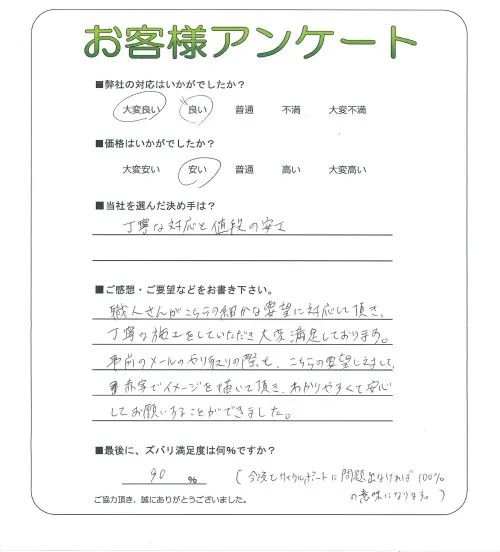 お客様アンケート
■弊社の対応はいかがでしたか？
大変良い 良い 普通 不満 大変不満
■価格はいかがでしたか？
大変安い 安い 普通 高い 大変高い
■当社を選んだ決め手は？
丁寧な対応と値段の安さ
■ご感想・ご要望などをお書き下さい。
職人さんがこちらの細かな要望に対応して頂き、
丁寧な施工をしていただき大変満足しております。
事前のメールのやり取りの際も、こちらの要望に対して、
赤字でイメージを描いて頂き、わかりやすくて安心
してお願いすることができました。
■最後に、ズバリ満足度は何%ですか？
90 % (今後サイクルポートに問題出なければ100%
の意味になります。)
ご協力頂き、誠にありがとうございました。